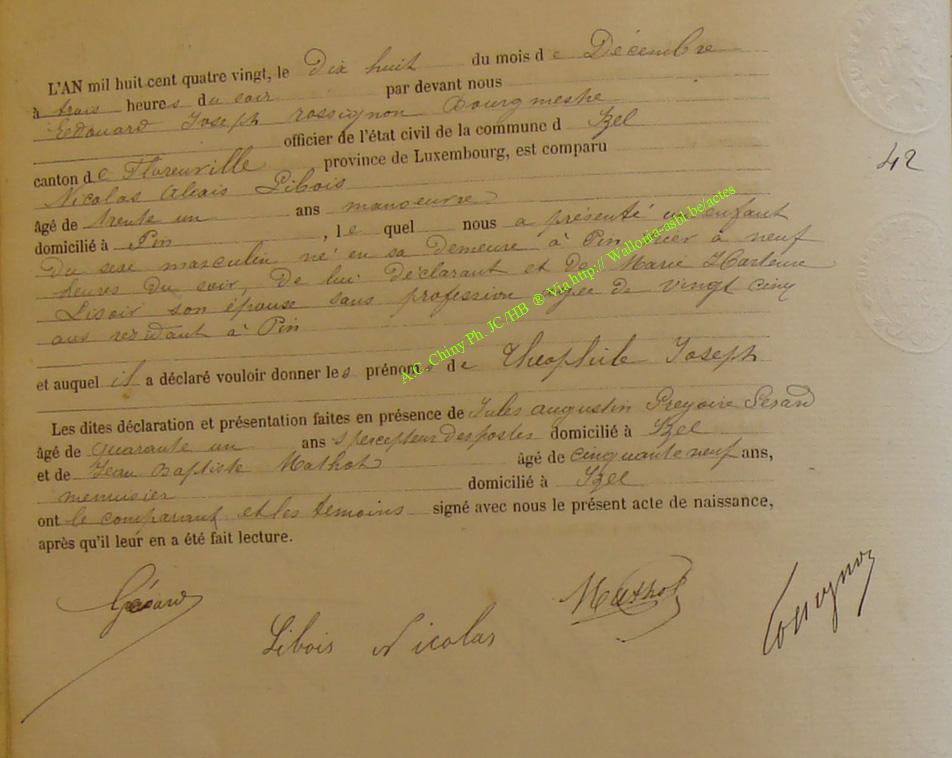 L'AN mil huit cent quatre vingt, le Dix huit du mois de Décembre
à trois heures du soir par devant nous
Edouard Joseph rossignon Bourgmestre
officier de l'état civil de la commune d Izel
canton de Florenville province de Luxembourg, est comparu
42
Nicolas Alexis Libois
âgé de trente un ans manoeuvre
domicilié à Pin, le quel nous a présenté un enfant
Du sexe masculin né en sa demeure à Pin hier à neuf
heures du soir, De lui déclarant et de Marie
Lisoir son épouse sans profession agée de vingt cinq
ans résidant à Pin
et auquel il a déclaré vouloir donner les prénoms de Théophile Joseph
Les dites déclaration et présentation faites en présence de Jules Augustin Grégoire Gérard
âgé de quarante un ans percepteur des postes domicilié à Izel
et de Jean Baptiste Mathot âgé de cinquante neuf ans,
menuisier domicilié à Izel
ont le comparant et les témoins signé avec nous le présent acte de naissance,
après qu'il leur en a été fait lecture.
Gérard
Libois Nicolas
Mathot
rossignon
A.C. Chiny Ph. JC/HB ® Via http:// Wallonia-asbl.be/actes